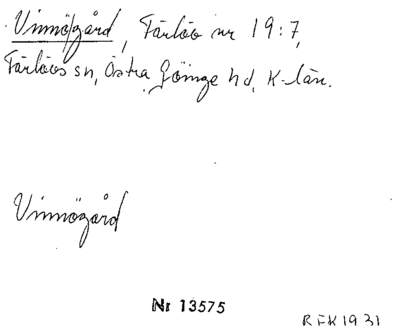 Vinnögård, Färlöv nr 19:7,
Färlövs sn, Östra Göinge hd, K-län.
Vinnögård
Nr 13575
RFK 1931